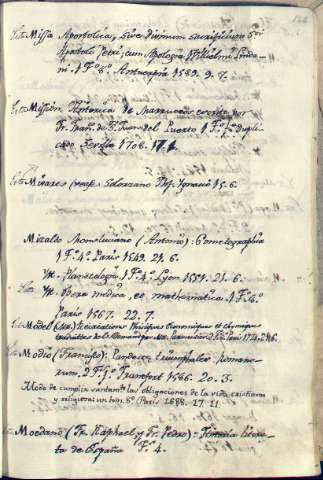 Missa Apostolica, sive divinum sacrificium Sti
Apostoli Petri, cum Apologia Wilhelmi Linda-
ni. 1 Fº 8º. Antuerpia 1589. 9. 7.
Mission Historica de Marruecos escrita por
Fr. Franº de S. Juan del Puerto 1 Fº fº dupli-
cado Sevilla 1708. 17. 1.
Mirares (vease Solorzano Ignacio 15. 6.
Miralto Monsluciano (Antonio): Cometographia
1 Fº 4º Paris 1549. 21. 6.
Yt. Planetologia 1 Fº 4º Lyon 1551. 21. 6.
Yt. Opera medica, et mathematica 1 Fº 4º
Paris 1567. 22. 7.
Model Récréations Phisiques Economiques et chimiques
Paris 1774. 24. 6.
Modio (Francisco): Pandectæ triumphales Romano-
rum. 2 Fº fº Francfort 1586. 20. 3.
Modo de cumplir santamte las obligaciones de la vida cristiana
y religiosa: un tom. 8º (Paris 1888. 27. 21.
Moedano (Fr. Raphael y Fr. Pedro): Historia litera-
ta de España Fº 4.